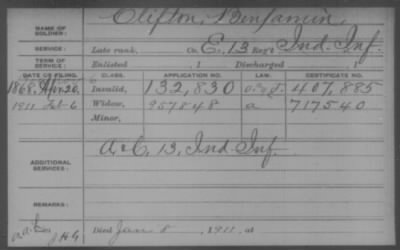 NAME OF SOLDIER: Clifton, Benjamin,
SERVICE: Late rank, Co. E, 13 Reg't Ind. Inf.
TERM OF SERVICE: Enlisted , 1 Discharged , 1
DATE OF FILING. CLASS. APPLICATION NO. LAW. CERTIFICATE NO.
1868, Apr. 20, Invalid, 132,830 407,885
1911 Feb 6 Widow, 957848 a 717540
Minor,
ADDITIONAL SERVICES: A & C, 13, Ind. Inf.
REMARKS:
Died Jan 8, 1911, at